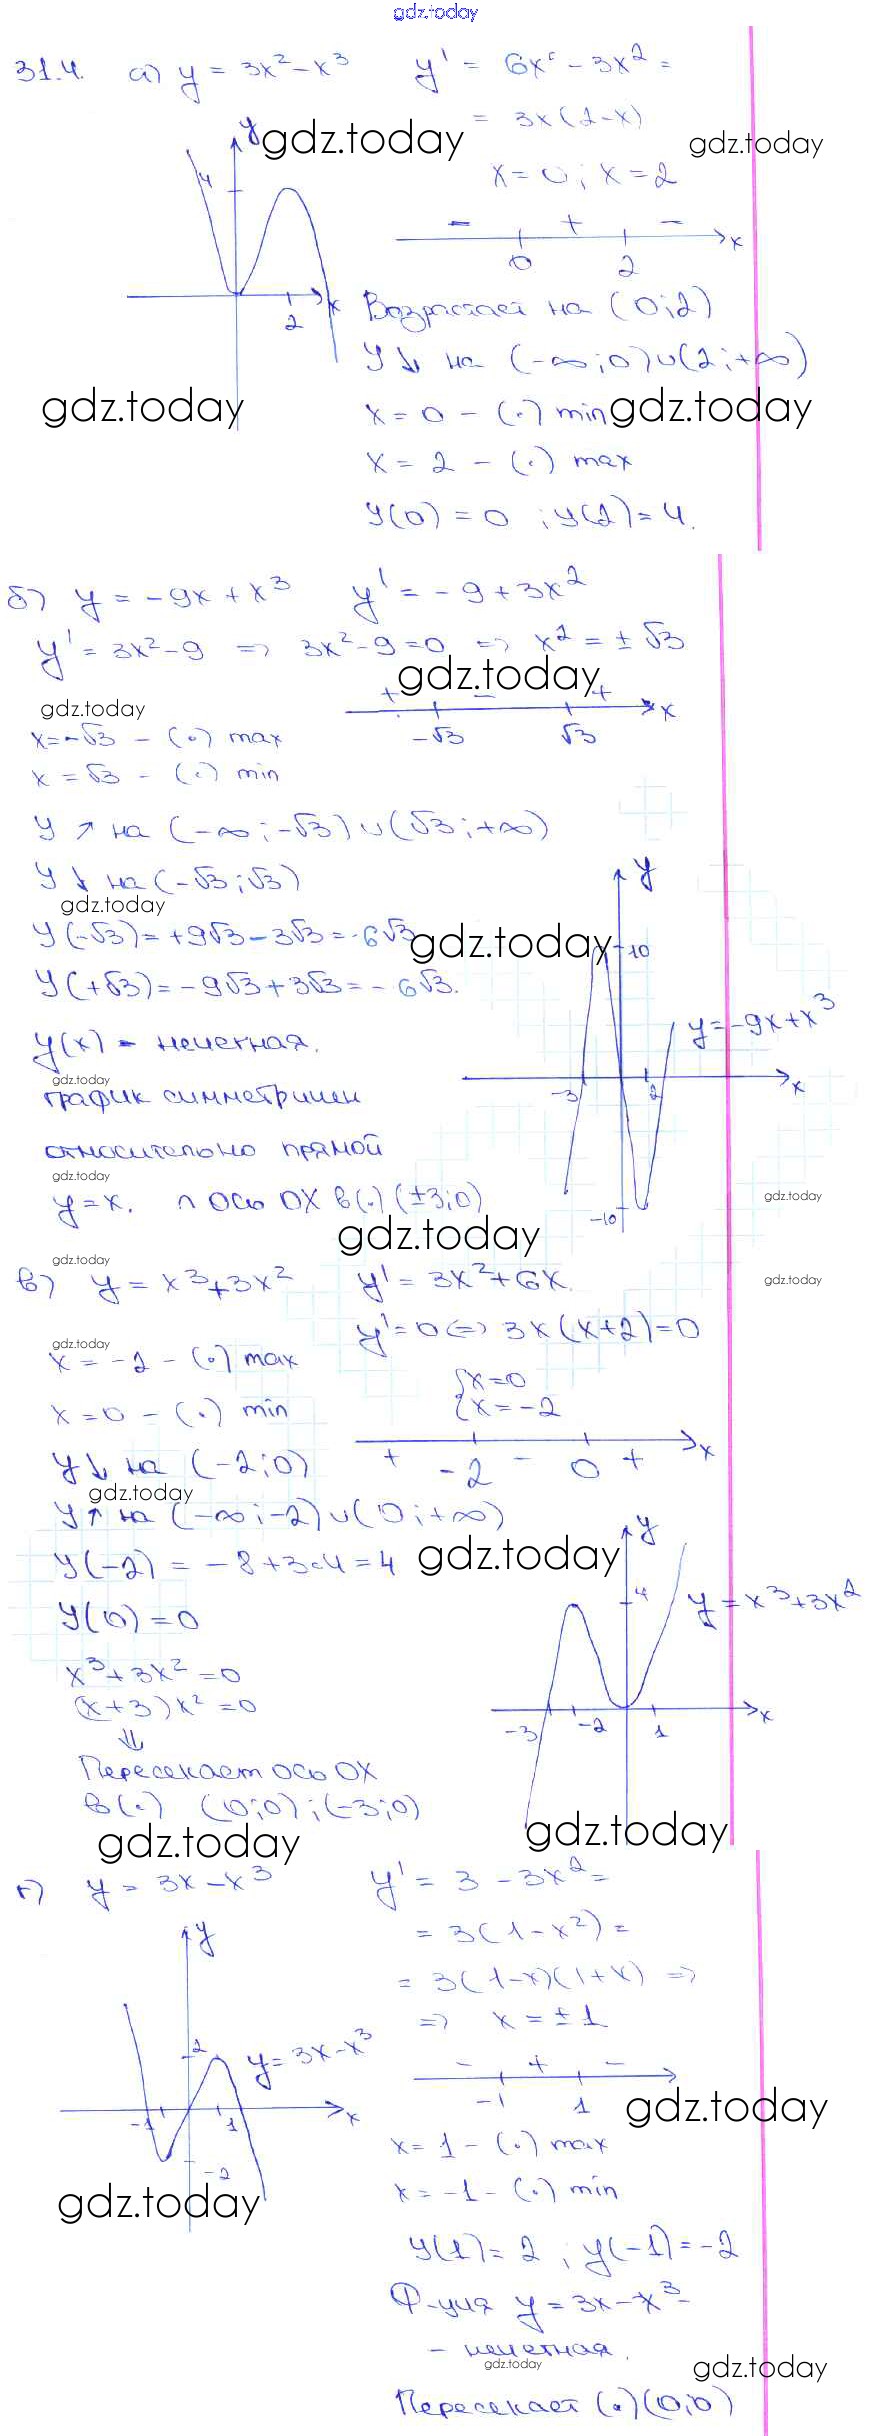 gdz.today
31.4. а) y = 3x² - x³ y' = 6x - 3x² =
= 3x(2-x)
gdz.today gdz.today
x = 0; x = 2
y
4
- + -
0 2 x
2 x
Возрастает на (0;2)
y↓ на (-∞;0)∪(2;+∞)
gdz.today gdz.today
x = 0 - (.) min
x = 2 - (.) max
y(0) = 0 ; y(2) = 4.
б) y = -9x + x³ y' = -9 + 3x²
y' = 3x² - 9 => 3x² - 9 = 0 => x² = ± √3
gdz.today
gdz.today
+ - +
-√3 √3 x
x = -√3 - (.) max
x = √3 - (.) min
y ↑ на (-∞;-√3)∪(√3;+∞)
y ↓ на (-√3;√3)
gdz.today
y(-√3) = +9√3 - 3√3 = -6√3
gdz.today
y(+√3) = -9√3 + 3√3 = -6√3.
y
10
y = -9x + x³
-3 2 x
-10
y(x) - нечетная.
gdz.today
график симметричен
относительно прямой
gdz.today gdz.today
y = x. ∩ ось OX в(.) (±3;0)
gdz.today
gdz.today gdz.today
в) y = x³ + 3x² y' = 3x² + 6x
y' = 0 <=> 3x(x+2) = 0
gdz.today
x = -2 - (.) max
{x = 0
{x = -2
x = 0 - (.) min
+ -2 - 0 + x
y↓ на (-2;0)
gdz.today
y↑ на (-∞;-2)∪(0;+∞)
y(-2) = -8 + 3·4 = 4
gdz.today
y
4
y = x³ + 3x²
-3 -2 1 x
y(0) = 0
x³ + 3x² = 0
(x+3)x² = 0
⇓
Пересекает ось OX
в(.) (0;0); (-3;0)
gdz.today gdz.today
г) y = 3x - x³ y' = 3 - 3x² =
= 3(1 - x²) =
= 3(1-x)(1+x) =>
=> x = ± 1
y
2
y = 3x - x³
-1 1 x
-2
- + -
-1 1
gdz.today
gdz.today
x = 1 - (.) max
x = -1 - (.) min
y(1) = 2 ; y(-1) = -2
Ф-ция y = 3x - x³ -
- нечетная.
gdz.today gdz.today
Пересекает (.) (0;0)